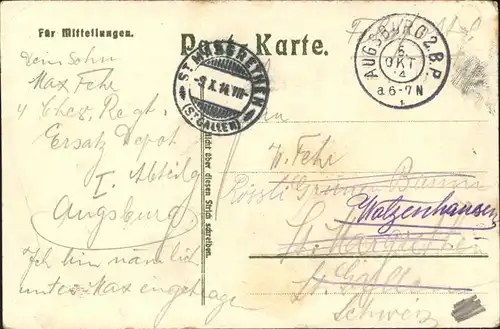 Für Mitteilungen.
Post-Karte.
AUGSBURG 2.B.P.
6
OKT
14
a.6-7 N
ST. MARGRETHEN
-9.X.14.VIII-
(ST. GALLEN)
Dein Sohn
Max Fehr
4 Chev. Regt.
Ersatz Depot
I. Abteilg
Augsburg
Ich bin nämlich
unter Max eingetragen
nicht über diesen Strich schreiben.
Fehr
Rössli Grüner Baum
Walzenhausen
St. Margrethen
St. Gallen
Schweiz